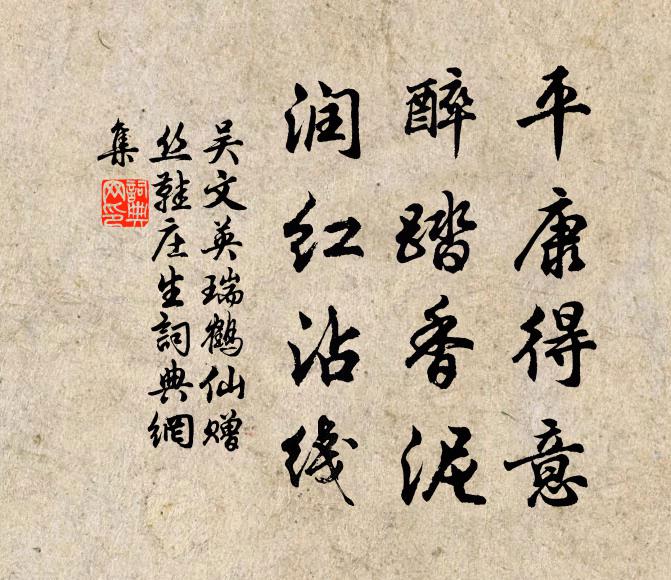 平康得意
醉踏香泥
润红沾线
吴文英瑞鹤仙赠
丝鞋庄生詞典網
集
詞典
网印